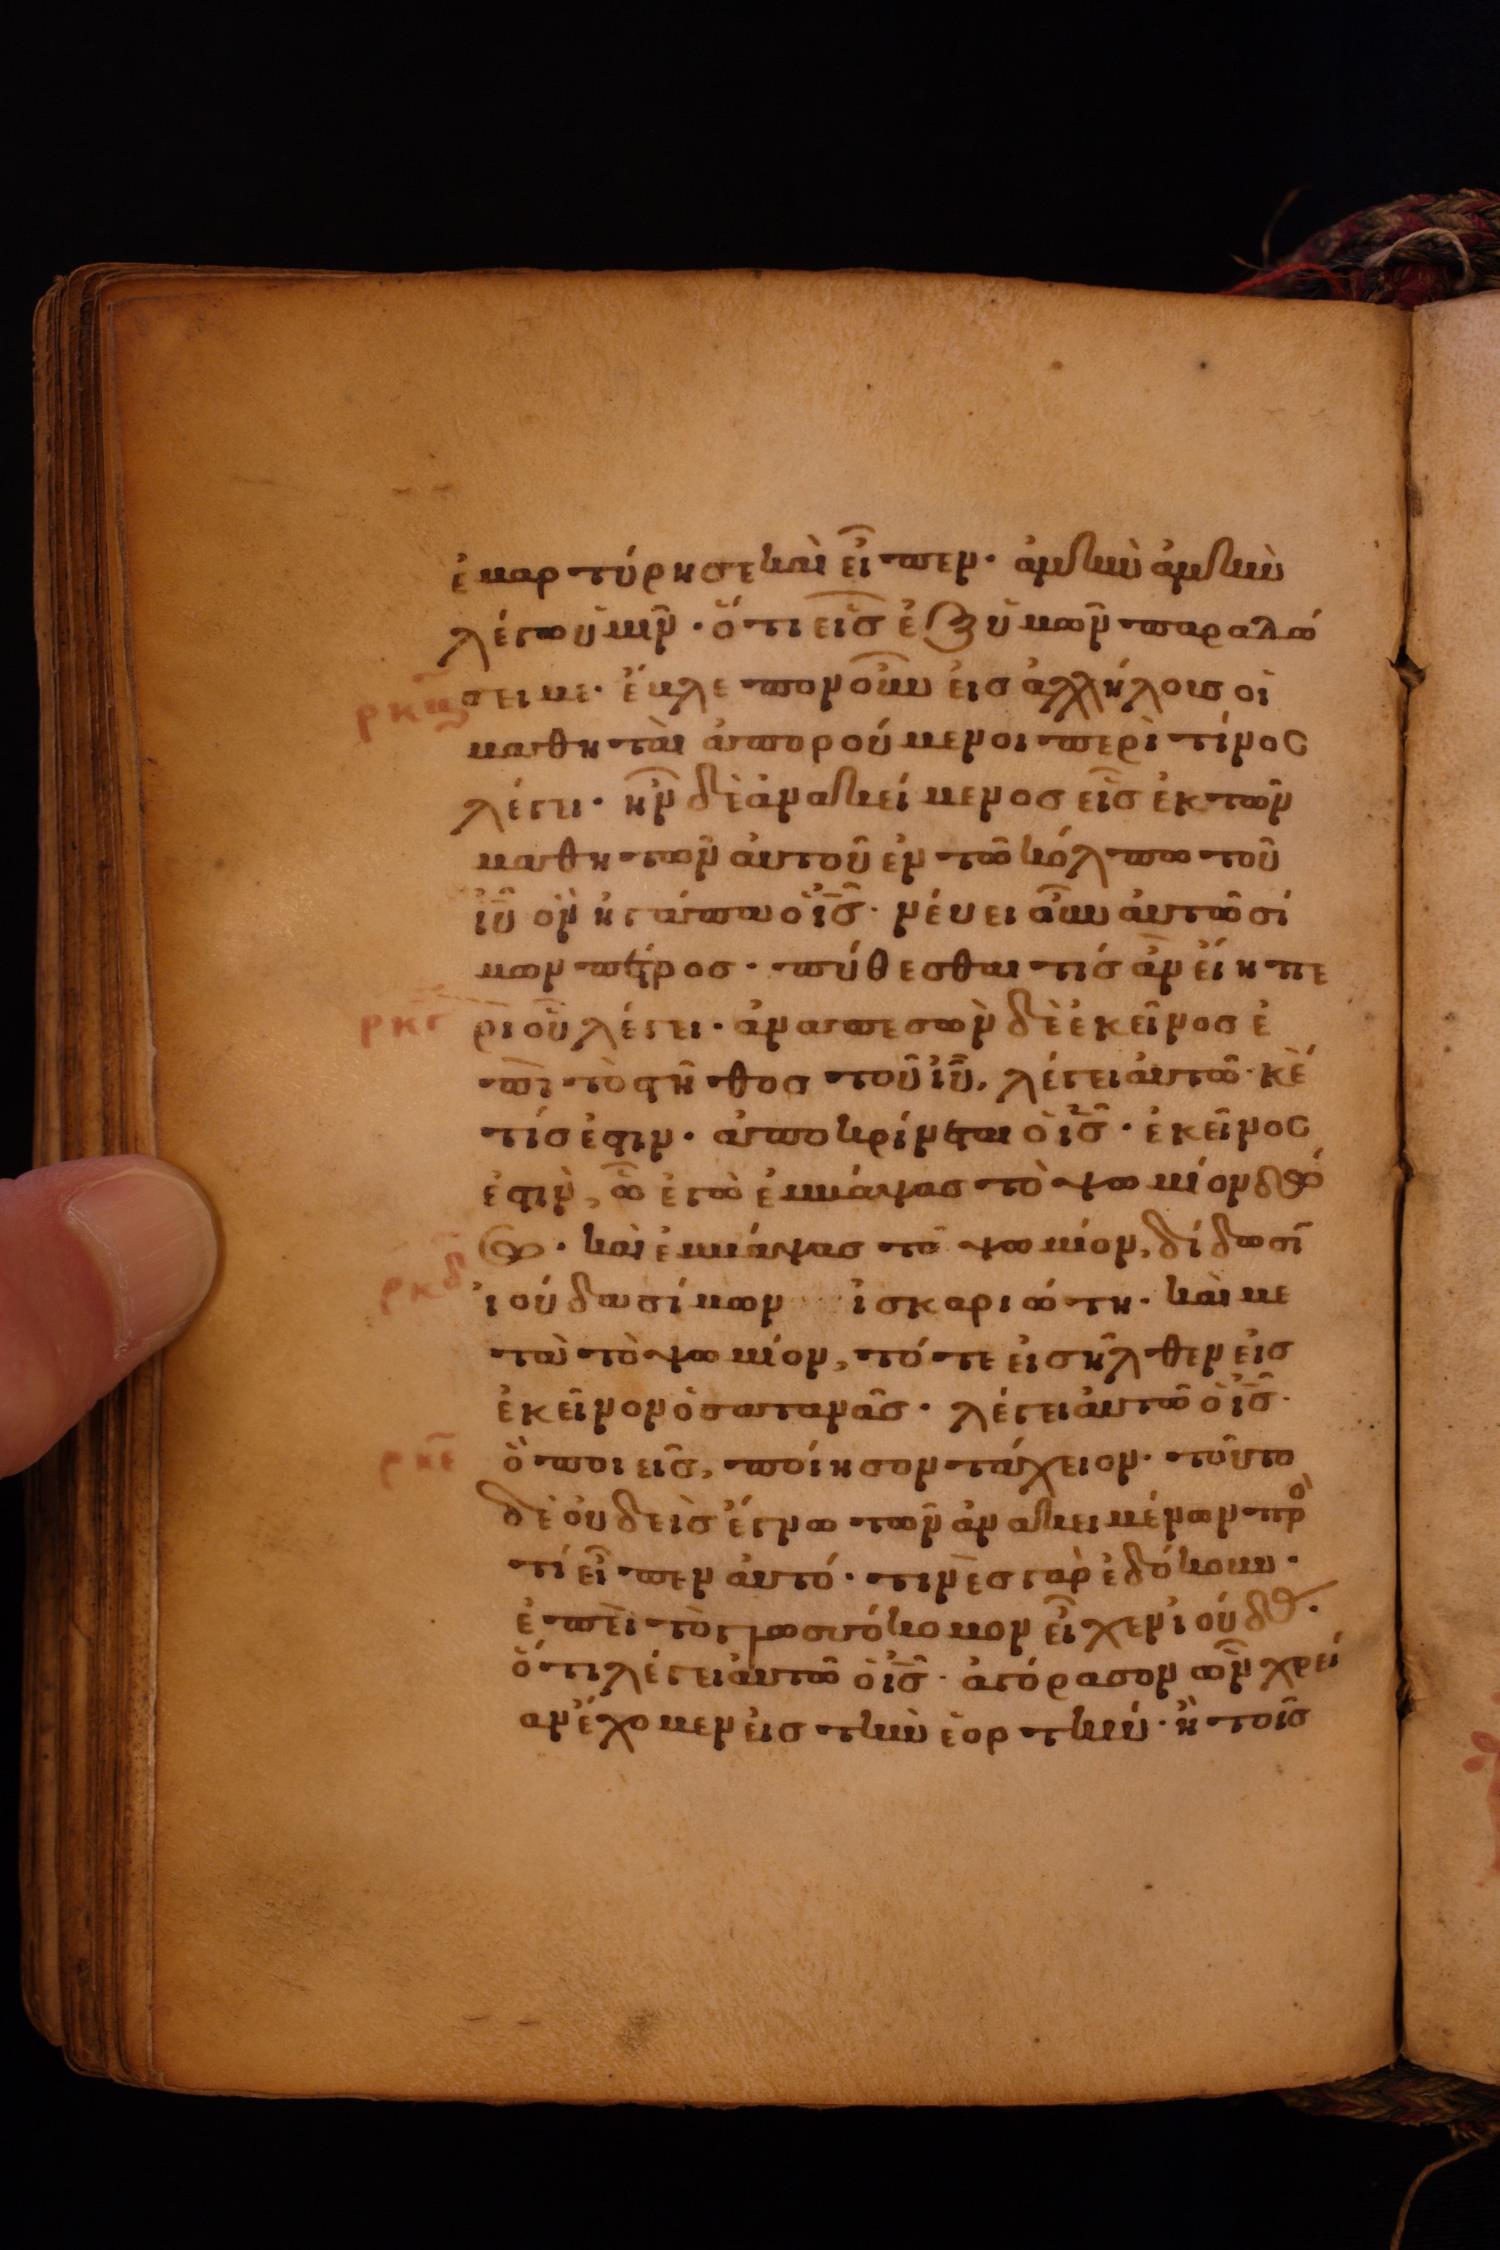 ἐμαρτύρησε καὶ εἶπεν· ἀμὴν ἀμὴν
λέγω ὑμῖν· ὅτι εἷς ἐξ ὑμῶν παραδώ
σει με· ἔβλεπον οὖν εἰς ἀλλήλους οἱ
μαθηταὶ ἀπορούμενοι περὶ τίνος
λέγει· ἦν δὲ ἀνακείμενος εἷς ἐκ τῶν
μαθητῶν αὐτοῦ ἐν τῶ κόλπω τοῦ
ἰῦ ὃν ἠγάπα ὁ ἰς· νεύει οὖν αὐτῶ σί
μων πέτρος· πύθεσθαι τίς ἂν εἴη πε
ρκγ
ρὶ οὗ λέγει· ἀναπεσὼν δὲ ἐκεῖνος ἐ
πὶ τὸ στῆθος τοῦ ἰῦ, λέγει αὐτῶ· κὲ
τίς ἐστιν· ἀποκρίνεται ὁ ἰς· ἐκεῖνος
ἐστιν, ὧ ἐγὼ ἐμβάψας τὸ ψωμίον δώ
σω· καὶ ἐμβάψας τὸ ψωμίον, δίδωσῖ
ρκδ
ἰούδα σίμων ἰσκαριώτη· καὶ με
τὰ τὸ ψωμίον, τότε εἰσῆλθεν εἰς
ἐκεῖνον ὁ σατανᾶς· λέγει αὐτῶ ὁ ἰς·
ρκε
ὃ ποιεῖς, ποίησον τάχειον· τοῦτο
δὲ οὐδεὶς ἔγνω τῶν ἀνακειμένων πρὸ
τί εἶπεν αὐτό· τινὲς γὰρ ἐδόκουν·
ἐπεὶ τὸ γλωσσόκομον εἶχεν ἰούδας·
ὅτι λέγει αὐτῶ ὁ ἰς· ἀγόρασον ὧν χρεί
αν ἔχομεν εἰς τὴν ἑορτήν· ἢ τοῖς